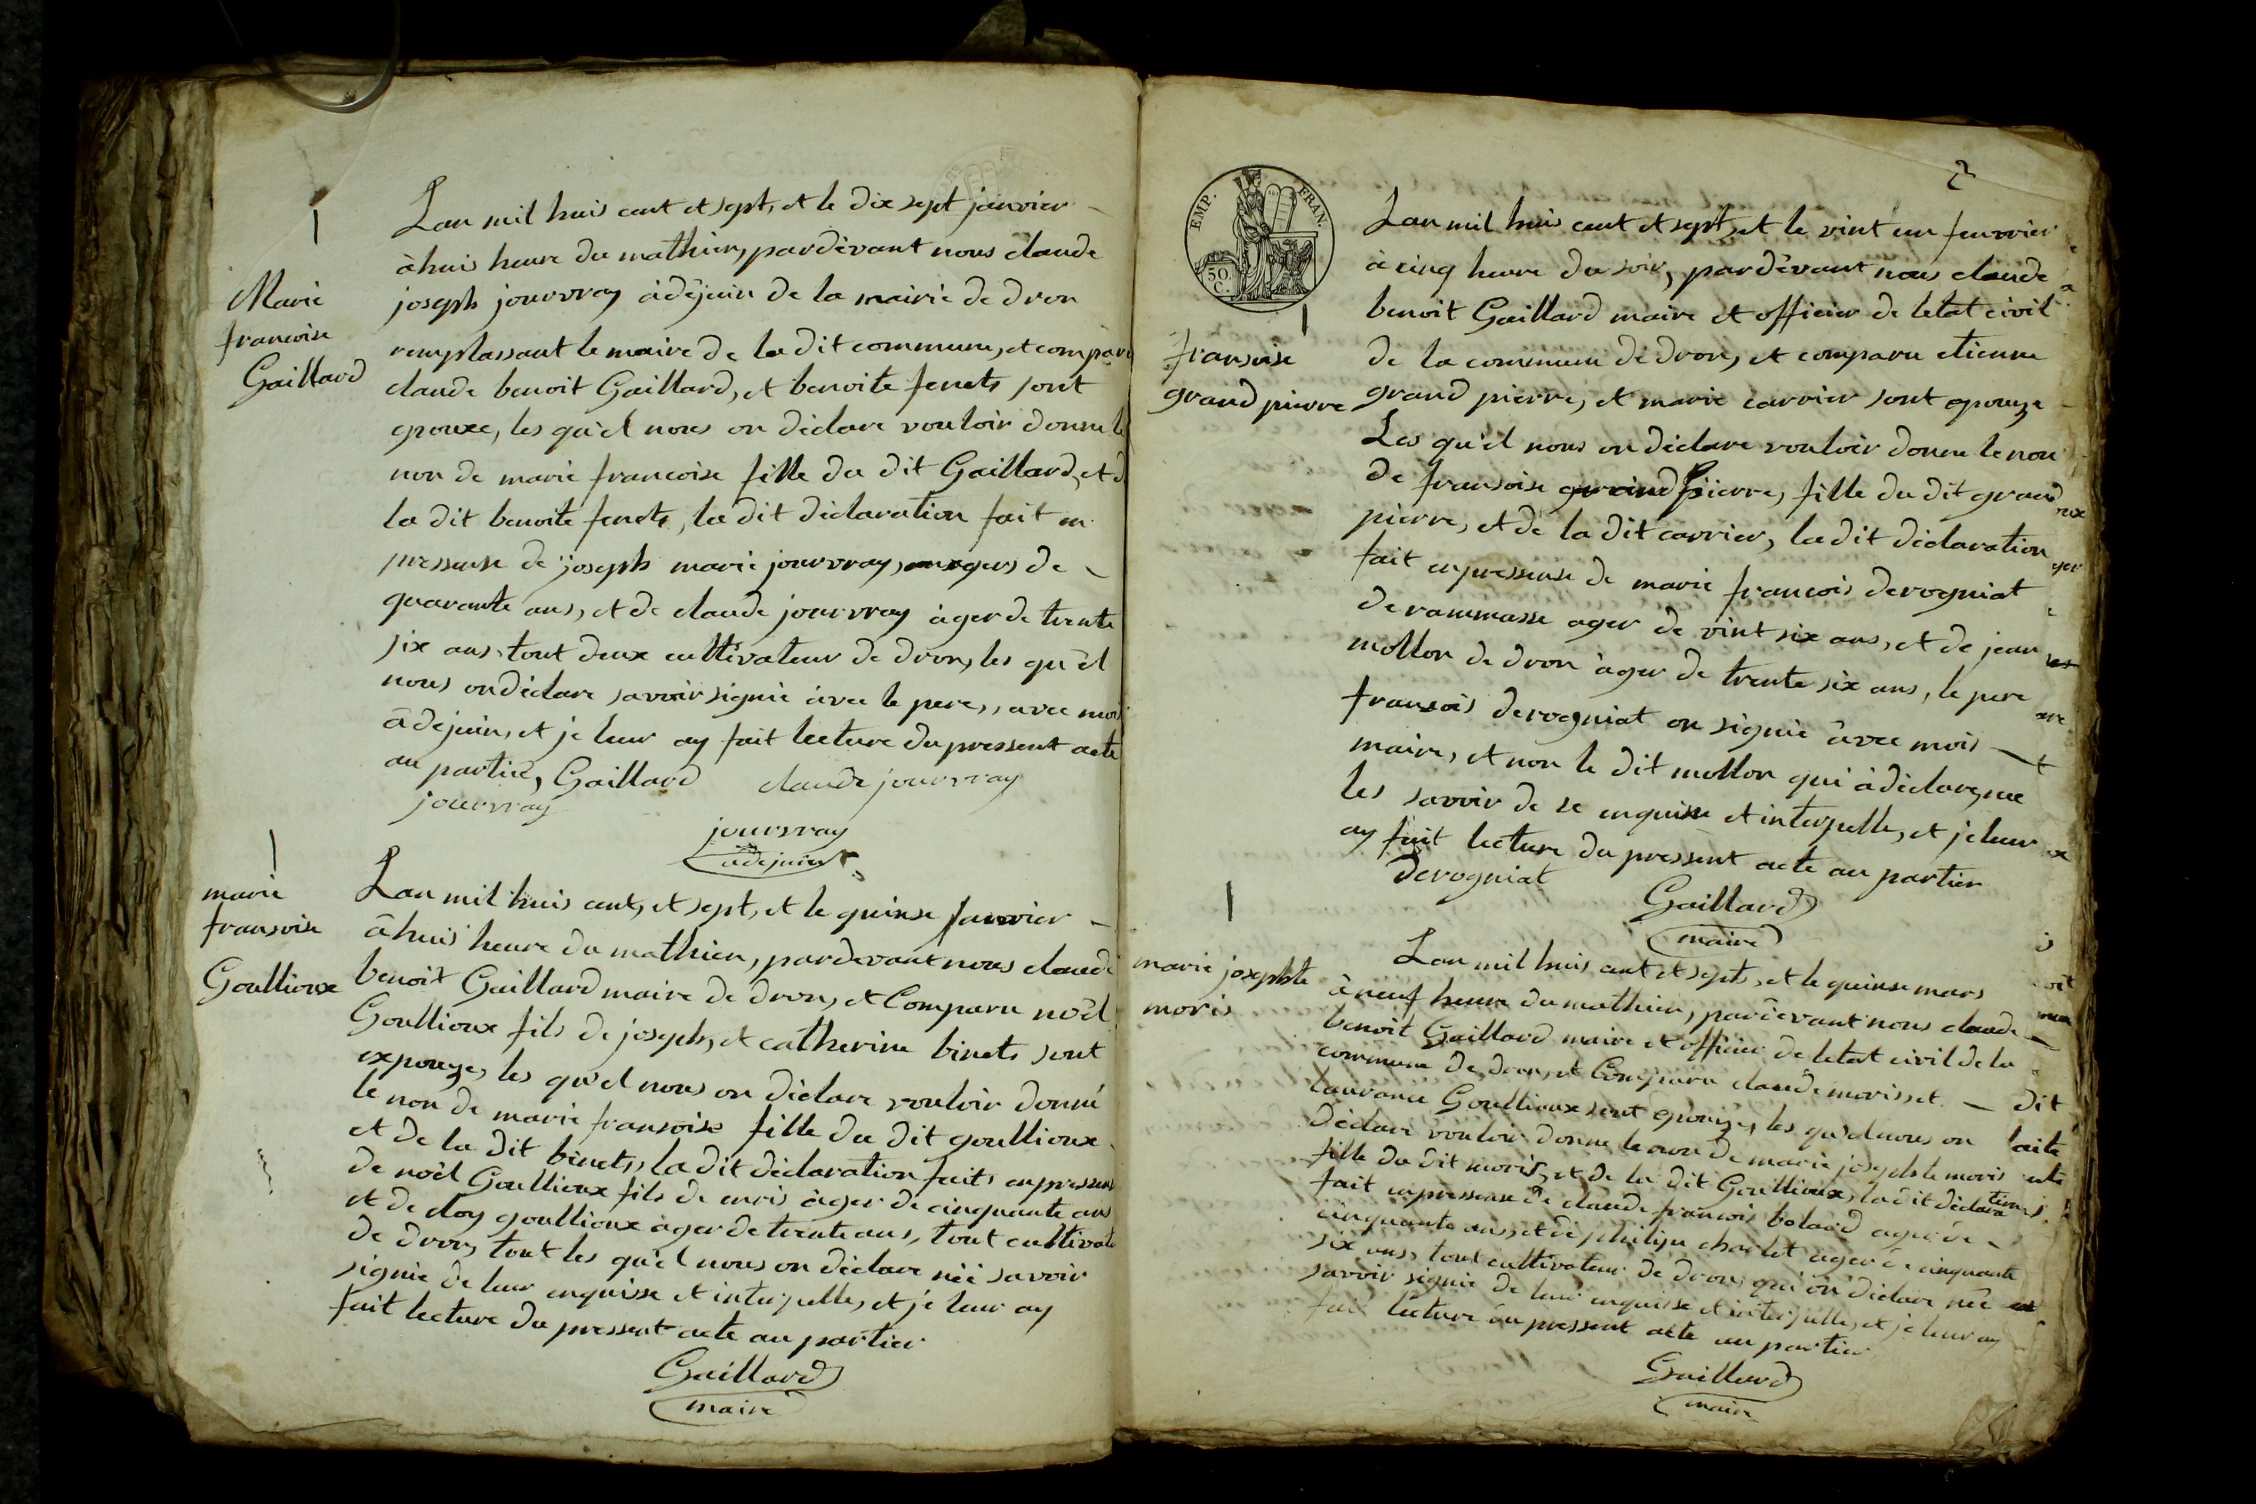 Lan mil huis cent et sept, et le dix sept janvier
à huis heure du mathien, pardèvant nous claude
joseph jourvray àdéjuin de la mairie de dron
remplassant le maire de la dit commune, et compar
claude benoit Gaillard, et benoite fenets sont
epouxe, les qu'el nous on déclare vouloir donne le
non de marie francoise fille du dit Gaillard, et d
la dit benoite fenets, la dit déclaration fait en
pressense de joseph marie jourvray, agers de
quarante ans, et de claude jourvray àger de trente
six ans, tout deux cultivateur de dron, les qu'el
nous on déclare savoir signie àvec le pere, avec mois
àdejuin, et je leur ay fait lecture du pressent acte
au partié, Gaillard claude jourvray
jourvray
jourvray
adejuint
Marie
francoise
Gaillard
Lan mil huis cent, et sept, et le quinse janvier
à huis heure du mathien, pardevant nous claude
benoit Gaillard maire de dron, et Comparu noël
Goullioux fils de joseph, et catherine binets sont
expouze, les qu'el nous on déclare vouloir donné
le non de marie fransoise fille du dit goullioux
et de la dit binets, la dit déclaration faits en pressens
de noël Goullioux fils de àger de cinquante ans
et de cloy goullioux àger de trente ans, tout cultivate
de dron, tout les qu'el nous on déclare néé savoir
signie de leur enquisse et interpelle, et je leur ay
fait lecture du pressent acte au partier
Gaillard
maire
marie
fransoise
Goullioux
2
EMP. FRAN.
50. C.
Lan mil huis cent et sept, et le vint un fevrier
à cinq heure du soir, pardèvant nous claude
benoit Gaillard maire et officier de letat civil
de la commune de dron, et comparu etienne
grand pierre, et marie carrier sont epouze
Les qu'el nous on déclare vouloir donne le non
de fransoise grand pierre, fille du dit grand
pierre, et de la dit carrier, la dit déclaration
fait enpressense de marie francois derogniat
de rammasse ager de vint six ans, et de jean
mollon de dron àger de trente six ans, le pere
fransois derogniat on signie àvec mois
maire, et non le dit mollon qui à déclare, nee
les savoir de se enquisse et interpelle, et je leur
ay fait lecture du pressent acte au partier
Derogniat
Gaillard
maire
fransoise
grand pierre
Lan mil huis cent et sept, et le quinse mars
à neuf heure du mathien, pardevant nous claude
benoit Gaillard maire et officier de letat civil de la
commune de dron, et Comparu claude moris et
laurance Goullioux sont epouze, les qu'el nous on
déclare vouloir donne le non de marie josephte moris
fille du dit moris, et de la dit Goullioux, la dit déclaration
fait enpressense de claude francois bolard agee de
cinquante ans, et de philipe charlet ager de cinquante
six ans, tout cultivateur de dron, qui on déclare néé
savoir signie de leur enquisse et interpelle, et je leur ay
fait lecture du pressent acte au partier
Gaillard
maire
marie josephte
moris
dit